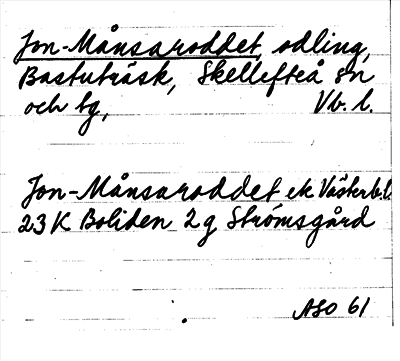 Jon-Månsaroddet, odling,
Bastuträsk, Skellefteå sn
och tg, Vb. l.
Jon-Månsaroddet ek Västerb.l.
23 K Boliden 2 g Strömsgård
ASO 61